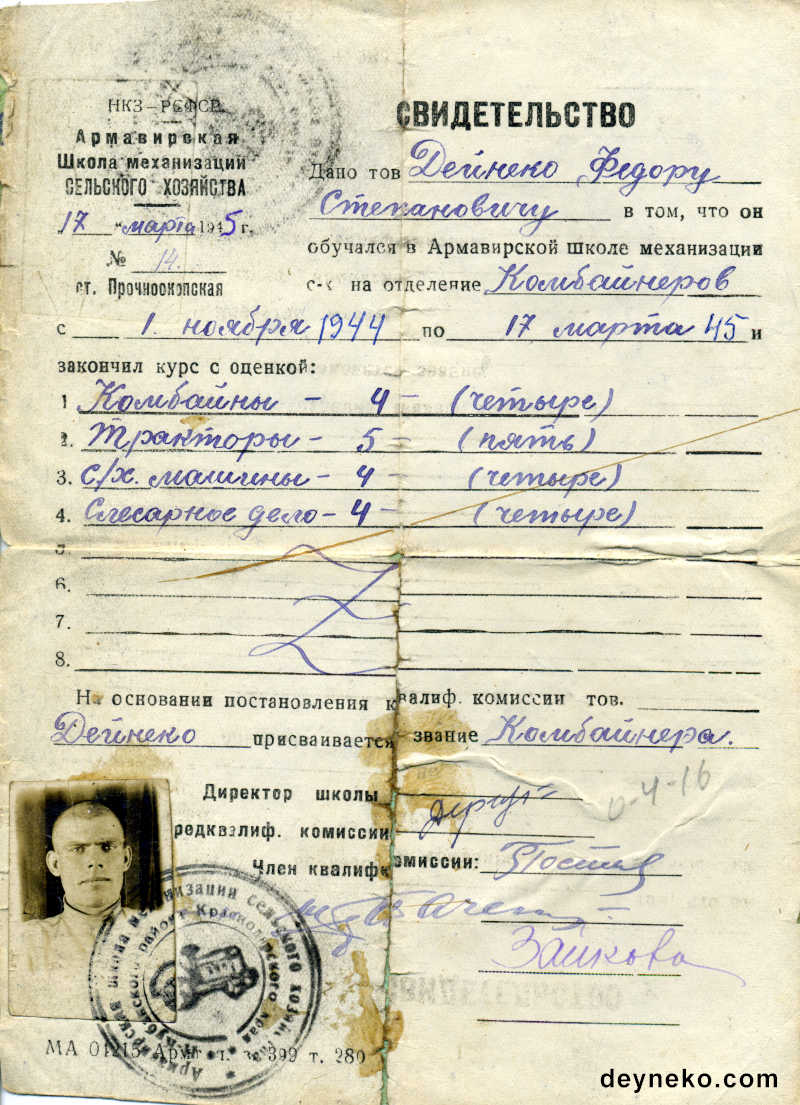 НКЗ-РСФСР
Армавирская
Школа механизации
СЕЛЬСКОГО ХОЗЯЙСТВА
17 " марта 1945 г.
№ 14.
ст. Прочноокопская
СВИДЕТЕЛЬСТВО
Дано тов Дейнеко Федору
Степановичу в том, что он
обучался в Армавирской школе механизации
с-х на отделение Комбайнеров
с 1. ноября 1944 по 17 марта 45 и
закончил курс с оценкой:
1 Комбайны - 4 - (четыре)
2. Тракторы - 5 - (пять)
3. с/х. машины - 4 - (четыре)
4. Слесарное дело - 4 - (четыре)
5
6.
7.
8.
На основании постановления квалиф. комиссии тов.
Дейнеко присваивается звание Комбайнера.
Директор школы
редквалиф. комиссии
Член квалиф комиссии:
Зайкова
0-4-16
Армавирская школа механизации сельского хозяйства
района Краснодарского края
МА 01215 Арм т. з. 399 т. 280
deyneko.com